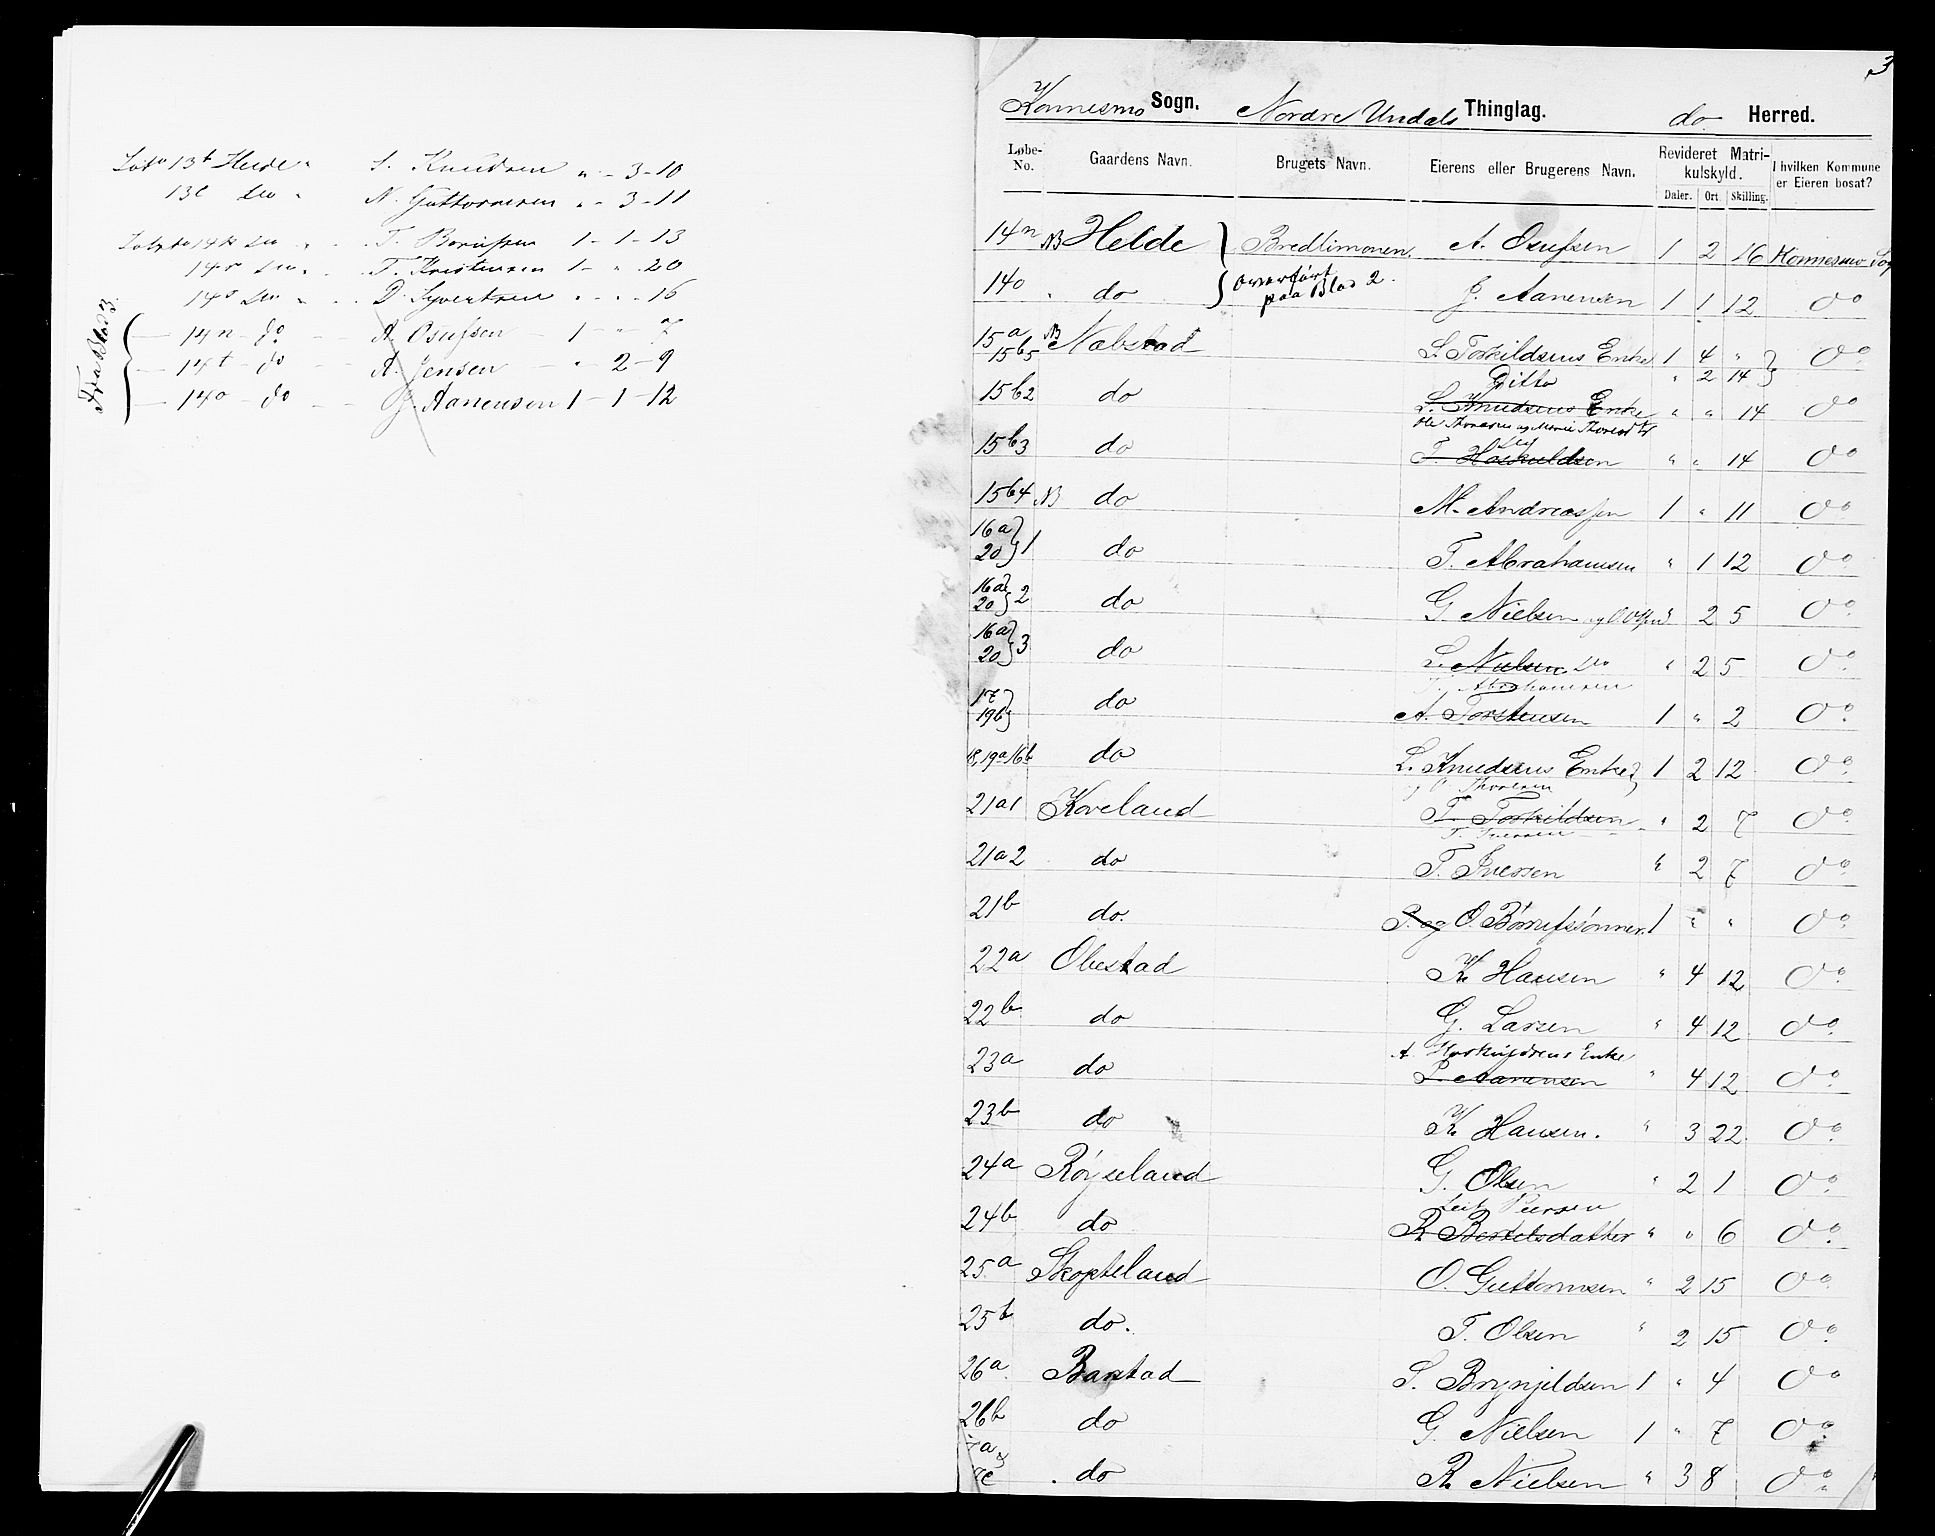 13b Helde " S. Knudsen " - 3 - 10
13c do " N. Guttormsen " - 3 - 11
14k do " T. Børufsen 1 - 1 - 13
14r do " T. Kristensen 1 - " . 20
14s do " D. Syvertsen " . " . 16
Fra Blad 3
14n - do - A. Osufsen 1 - " - 7
14t - do - A. Jensen - " 2 - 9
14o - do - J. Aanensen 1 - 1 - 12
3
Konnesmo Sogn. Nordre Undals Thinglag. do Herred.
Løbe-No. Gaardens Navn. Brugets Navn. Eierens eller Brugerens Navn. Revideret Matrikulskyld. I hvilken Kommune er Eieren bosat?
Daler. Ort. Skilling.
14n NB Helde Bredlimonen A. Osufsen 1 2 16 Konnesmo Sog
14o " do Overført paa Blad 2. J. Aanensen 1 1 12 Do
15a 15b5 NB Nabstad S. Torkildsens Enke 1 4 " Do
Ditto " 2 14
15b2 do L. Knudsens Enke " " 14 Do
15b3 do T. Haskuldsen " " 14 Do
15b4 NB do M. Andreassen 1 " 11 Do
16a 20 } 1 do T. Abrahamsen " 1 12 Do
16a 20 } 2 do G. Nielsen og O. Olsen " 2 5 Do
16a 20 } 3 do L. Nielsen do " 2 5 Do
T. Abrahamsen
17 19b } do A. Torstensen 1 " 2 Do
18, 19a 16b do L. Knudsens Enke 1 2 12 Do
og O Thoresen
21a1 Koveland T. Torkildsen " 2 7 Do
T. Iversen
21a2 do T. Iversen " 2 7 Do
21b do. P. og O. Børrufssønner 1 " " Do
22a Obestad K. Hansen " 4 12 Do
22b do G. Larsen " 4 12 Do
A. Enke
23a do P. Aanensen " 4 12 Do
23b do K. Hansen. " 3 22 Do
24a Røyseland G. Olsen " 2 1 Do
Peersen
24b do R. Bertelsdatter " " 6 Do
25a Skopteland O. Guttormsen " 2 15 Do
25b do. T. Olsen " 2 15 Do
26a Barstad S. Brynjeldsen 1 " 4 Do
26b do G. Nielsen 1 " 7 Do
do R. Nielsen " 3 8 Do